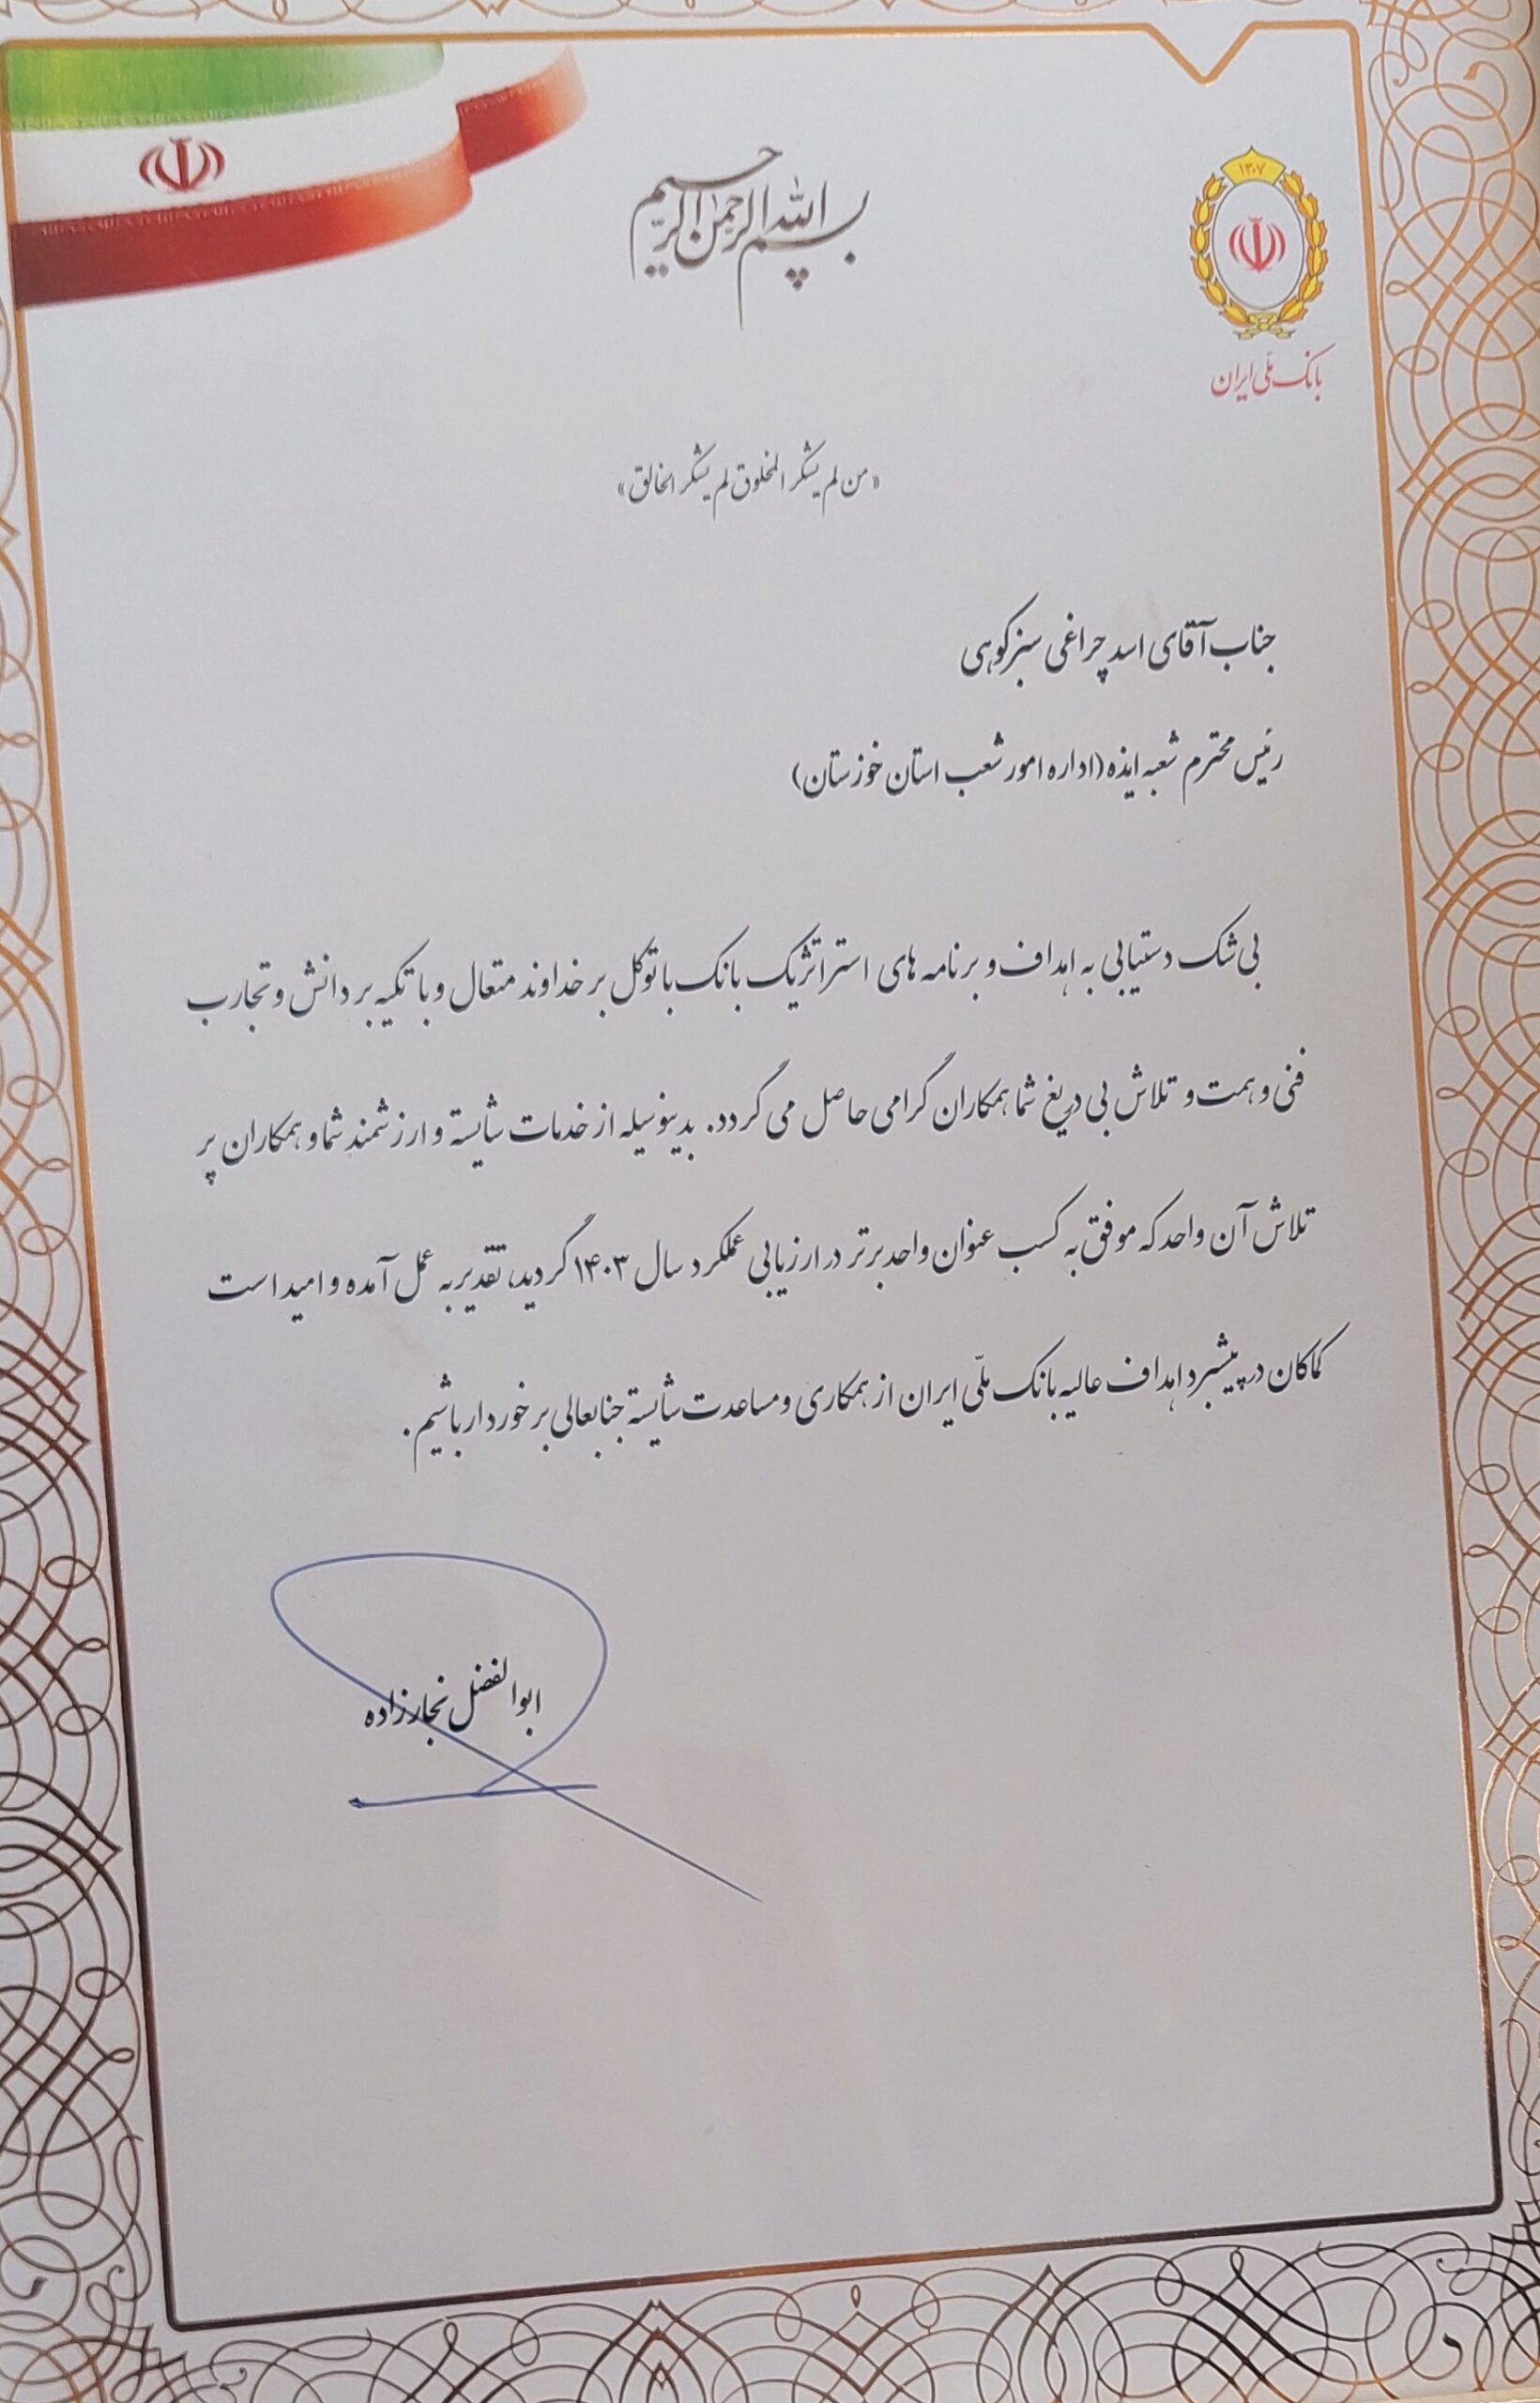 بسم الله الرحمن الرحیم
۱۳۰۷
بانک ملّی ایران
«من لم یشکر المخلوق لم یشکر الخالق»
جناب آقای اسد چراغی سبزکوهی
رئیس محترم شعبه ایذه (اداره امور شعب استان خوزستان)
بی شک دستیابی به اهداف و برنامه های استراتژیک بانک با توکل بر خداوند متعال و با تکیه بر دانش و تجارب
فنی و همت و تلاش بی دریغ شما همکاران گرامی حاصل می گردد. بدینوسیله از خدمات شایسته و ارزشمند شما و همکاران پر
تلاش آن واحد که موفق به کسب عنوان واحد برتر در ارزیابی عملکرد سال ۱۴۰۳ گردید، تقدیر به عمل آمده و امید است
کماکان در پیشبرد اهداف عالیه بانک ملّی ایران از همکاری و مساعدت شایسته جنابعالی برخوردار باشیم.
ابوالفضل نجارزاده